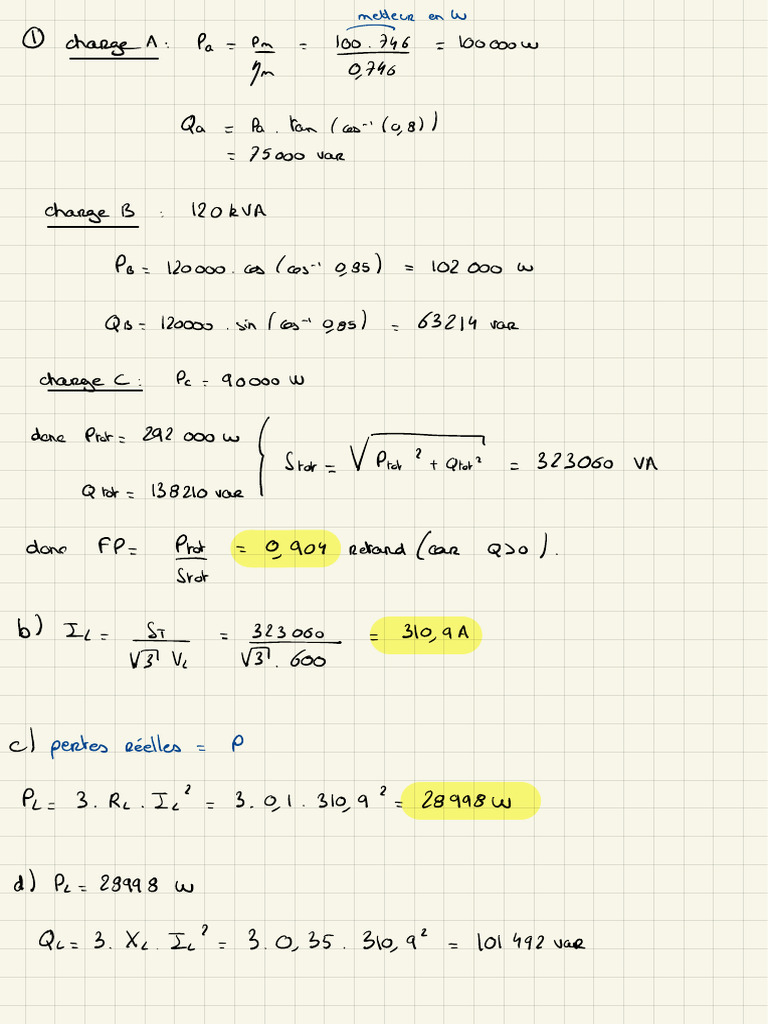 metteur en W
① charge A : Pa = Pm/ηm = 100.746/0,746 = 100000 W
Qa = Pa . tan (cos⁻¹ (0,8))
= 75000 var
charge B : 120 kVA
PB = 120000 . cos (cos⁻¹ 0,85) = 102 000 W
QB = 120000 . sin (cos⁻¹ 0,85) = 63214 var
charge C : Pc = 90000 W
donc Ptot = 292 000 W
Stot = √(Ptot² + Qtot²) = 323060 VA
Qtot = 138210 var
donc FP = Ptot/Stot = 0,904 retard (car Q>0).
b) IL = ST/(√3 VL) = 323060/(√3 . 600) = 310,9 A
c) pertes réelles = P
PL = 3 . RL . IL² = 3 . 0,1 . 310,9² = 28998 W
d) PL = 28998 W
QL = 3 . XL . IL² = 3 . 0,35 . 310,9² = 101 492 var